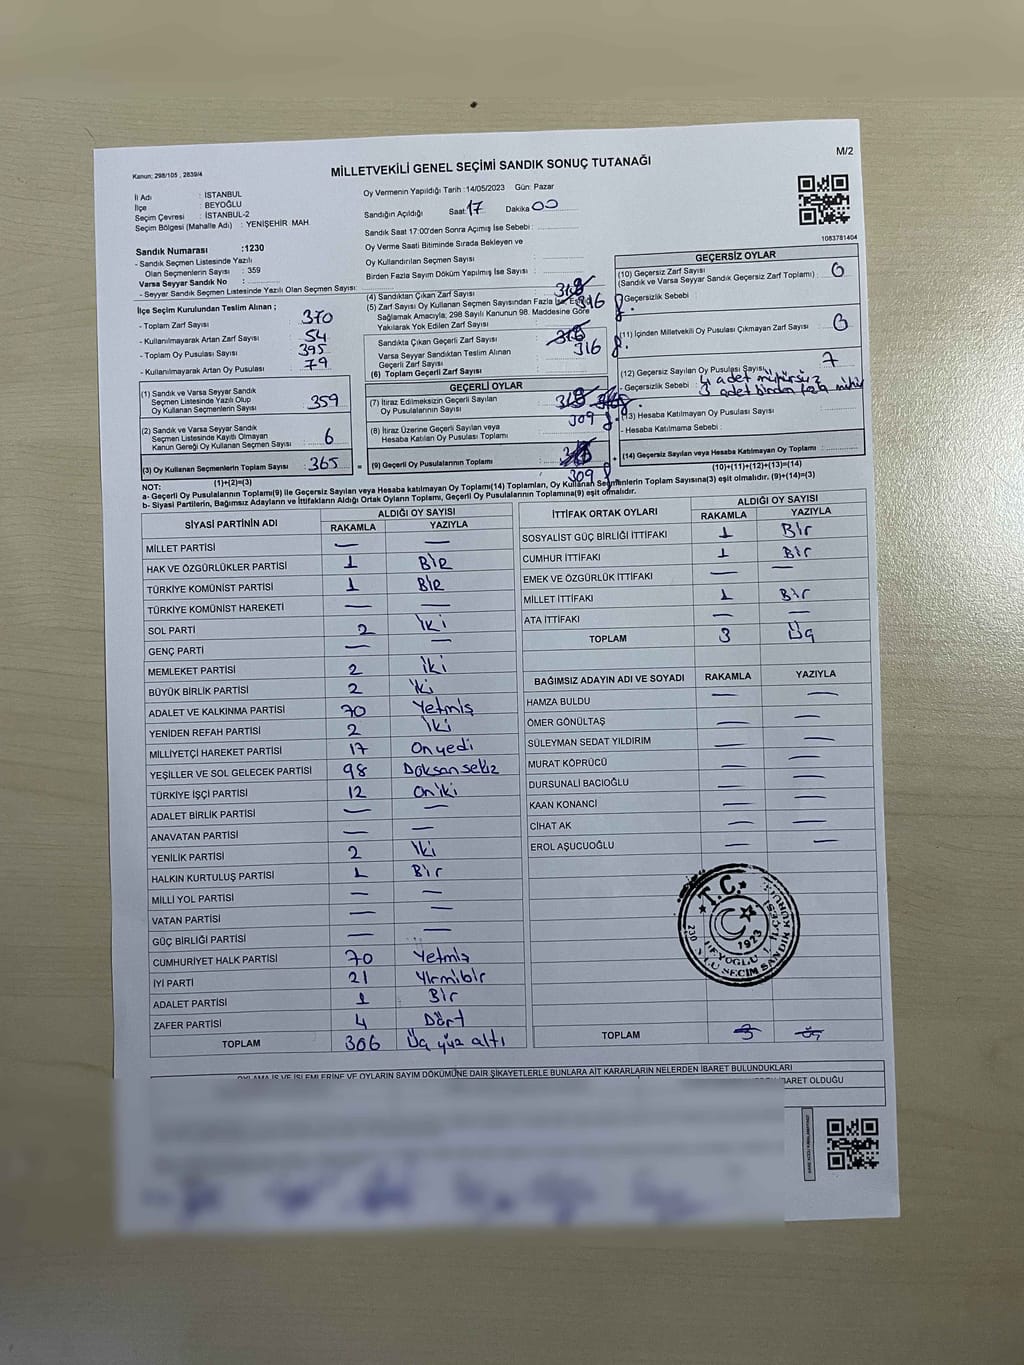 Kanun; 298/105 , 2839/4
MİLLETVEKİLİ GENEL SEÇİMİ SANDIK SONUÇ TUTANAĞI
M/2
İl Adı : İSTANBUL
İlçe : BEYOĞLU
Seçim Çevresi : İSTANBUL-2
Seçim Bölgesi (Mahalle Adı) : YENİŞEHİR MAH.
Sandık Numarası :1230
- Sandık Seçmen Listesinde Yazılı
Olan Seçmenlerin Sayısı : 359
Varsa Seyyar Sandık No :
- Seyyar Sandık Seçmen Listesinde Yazılı Olan Seçmen Sayısı :
Oy Vermenin Yapıldığı Tarih :14/05/2023 Gün: Pazar
Sandığın Açıldığı Saat: 17 Dakika 00
Sandık Saat 17:00'den Sonra Açımış İse Sebebi :
Oy Verme Saati Bitiminde Sırada Bekleyen ve
Oy Kullandırılan Seçmen Sayısı :
Birden Fazla Sayım Döküm Yapılmış İse Sayısı :
1083781404
İlçe Seçim Kurulundan Teslim Alınan ;
- Toplam Zarf Sayısı : 370
- Kullanılmayarak Artan Zarf Sayısı : 54
- Toplam Oy Pusulası Sayısı : 395
- Kullanılmayarak Artan Oy Pusulası : 79
(1) Sandık ve Varsa Seyyar Sandık
Seçmen Listesinde Yazılı Olup
Oy Kullanan Seçmenlerin Sayısı : 359
(2) Sandık ve Varsa Seyyar Sandık
Seçmen Listesinde Kayıtlı Olmayan
Kanun Gereği Oy Kullanan Seçmen Sayısı : 6
(3) Oy Kullanan Seçmenlerin Toplam Sayısı : 365
(1)+(2)=(3)
(4) Sandıktan Çıkan Zarf Sayısı : 316
(5) Zarf Sayısı Oy Kullanan Seçmen Sayısından Fazla İse
Sağlamak Amacıyla; 298 Sayılı Kanunun 98. Maddesine Göre
Yakılarak Yok Edilen Zarf Sayısı :
Sandıkta Çıkan Geçerli Zarf Sayısı : 316
Varsa Seyyar Sandıktan Teslim Alınan
Geçerli Zarf Sayısı :
(6) Toplam Geçerli Zarf Sayısı :
GEÇERLİ OYLAR
(7) İtiraz Edilmeksizin Geçerli Sayılan
Oy Pusulalarının Sayısı : 309
(8) İtiraz Üzerine Geçerli Sayılan veya
Hesaba Katılan Oy Pusulası Toplamı :
(9) Geçerli Oy Pusulalarının Toplamı : 309
GEÇERSİZ OYLAR
(10) Geçersiz Zarf Sayısı : 0
(Sandık ve Varsa Seyyar Sandık Geçersiz Zarf Toplamı)
- Geçersizlik Sebebi :
(11) İçinden Milletvekili Oy Pusulası Çıkmayan Zarf Sayısı : 0
(12) Geçersiz Sayılan Oy Pusulası Sayısı : 7
- Geçersizlik Sebebi : 4 adet mühürsüz
3 adet birden fazla
(13) Hesaba Katılmayan Oy Pusulası Sayısı :
- Hesaba Katılmama Sebebi :
(14) Geçersiz Sayılan veya Hesaba Katılmayan Oy Toplamı :
(10)+(11)+(12)+(13)=(14)
NOT:
a- Geçerli Oy Pusulalarının Toplamı(9) ile Geçersiz Sayılan veya Hesaba katılmayan Oy Toplamı(14) Toplamları, Oy Kullanan Seçmenlerin Toplam Sayısına(3) eşit olmalıdır. (9)+(14)=(3)
b- Siyasi Partilerin, Bağımsız Adayların ve İttifakların Aldığı Oy Sayıları ile İttifakların Aldığı Ortak Oyların Toplamı, Geçerli Oy Pusulalarının Toplamına(9) eşit olmalıdır.
SİYASİ PARTİNİN ADI ALDIĞI OY SAYISI
RAKAMLA YAZIYLA
MİLLET PARTİSİ — —
HAK VE ÖZGÜRLÜKLER PARTİSİ 1 Bir
TÜRKİYE KOMÜNİST PARTİSİ 1 Bir
TÜRKİYE KOMÜNİST HAREKETİ — —
SOL PARTİ 2 İki
GENÇ PARTİ — —
MEMLEKET PARTİSİ 2 İki
BÜYÜK BİRLİK PARTİSİ 2 İki
ADALET VE KALKINMA PARTİSİ 70 Yetmiş
YENİDEN REFAH PARTİSİ 2 İki
MİLLİYETÇİ HAREKET PARTİSİ 17 Onyedi
YEŞİLLER VE SOL GELECEK PARTİSİ 98 Doksan sekiz
TÜRKİYE İŞÇİ PARTİSİ 12 Oniki
ADALET BİRLİK PARTİSİ — —
ANAVATAN PARTİSİ — —
YENİLİK PARTİSİ 2 İki
HALKIN KURTULUŞ PARTİSİ 1 Bir
MİLLİ YOL PARTİSİ — —
VATAN PARTİSİ — —
GÜÇ BİRLİĞİ PARTİSİ — —
CUMHURİYET HALK PARTİSİ 70 Yetmiş
İYİ PARTİ 21 Yirmibir
ADALET PARTİSİ 1 Bir
ZAFER PARTİSİ 4 Dört
TOPLAM 306 Üç yüz altı
İTTİFAK ORTAK OYLARI ALDIĞI OY SAYISI
RAKAMLA YAZIYLA
SOSYALİST GÜÇ BİRLİĞİ İTTİFAKI 1 Bir
CUMHUR İTTİFAKI 1 Bir
EMEK VE ÖZGÜRLÜK İTTİFAKI — —
MİLLET İTTİFAKI 1 Bir
ATA İTTİFAKI — —
TOPLAM 3 Üç
BAĞIMSIZ ADAYIN ADI VE SOYADI RAKAMLA YAZIYLA
HAMZA BULDU — —
ÖMER GÖNÜLTAŞ — —
SÜLEYMAN SEDAT YILDIRIM — —
MURAT KÖPRÜCÜ — —
DURSUNALİ BACIOĞLU — —
KAAN KONANCİ — —
CİHAT AK — —
EROL AŞUCUOĞLU — —
T.C.
1923
TOPLAM 3 Üç
OYLAMA İŞ VE İŞLEMLERİNE VE OYLARIN SAYIM DÖKÜMÜNE DAİR ŞİKAYETLERLE BUNLARA AİT KARARLARIN NELERDEN İBARET BULUNDUKLARI
İBARET OLDUĞU